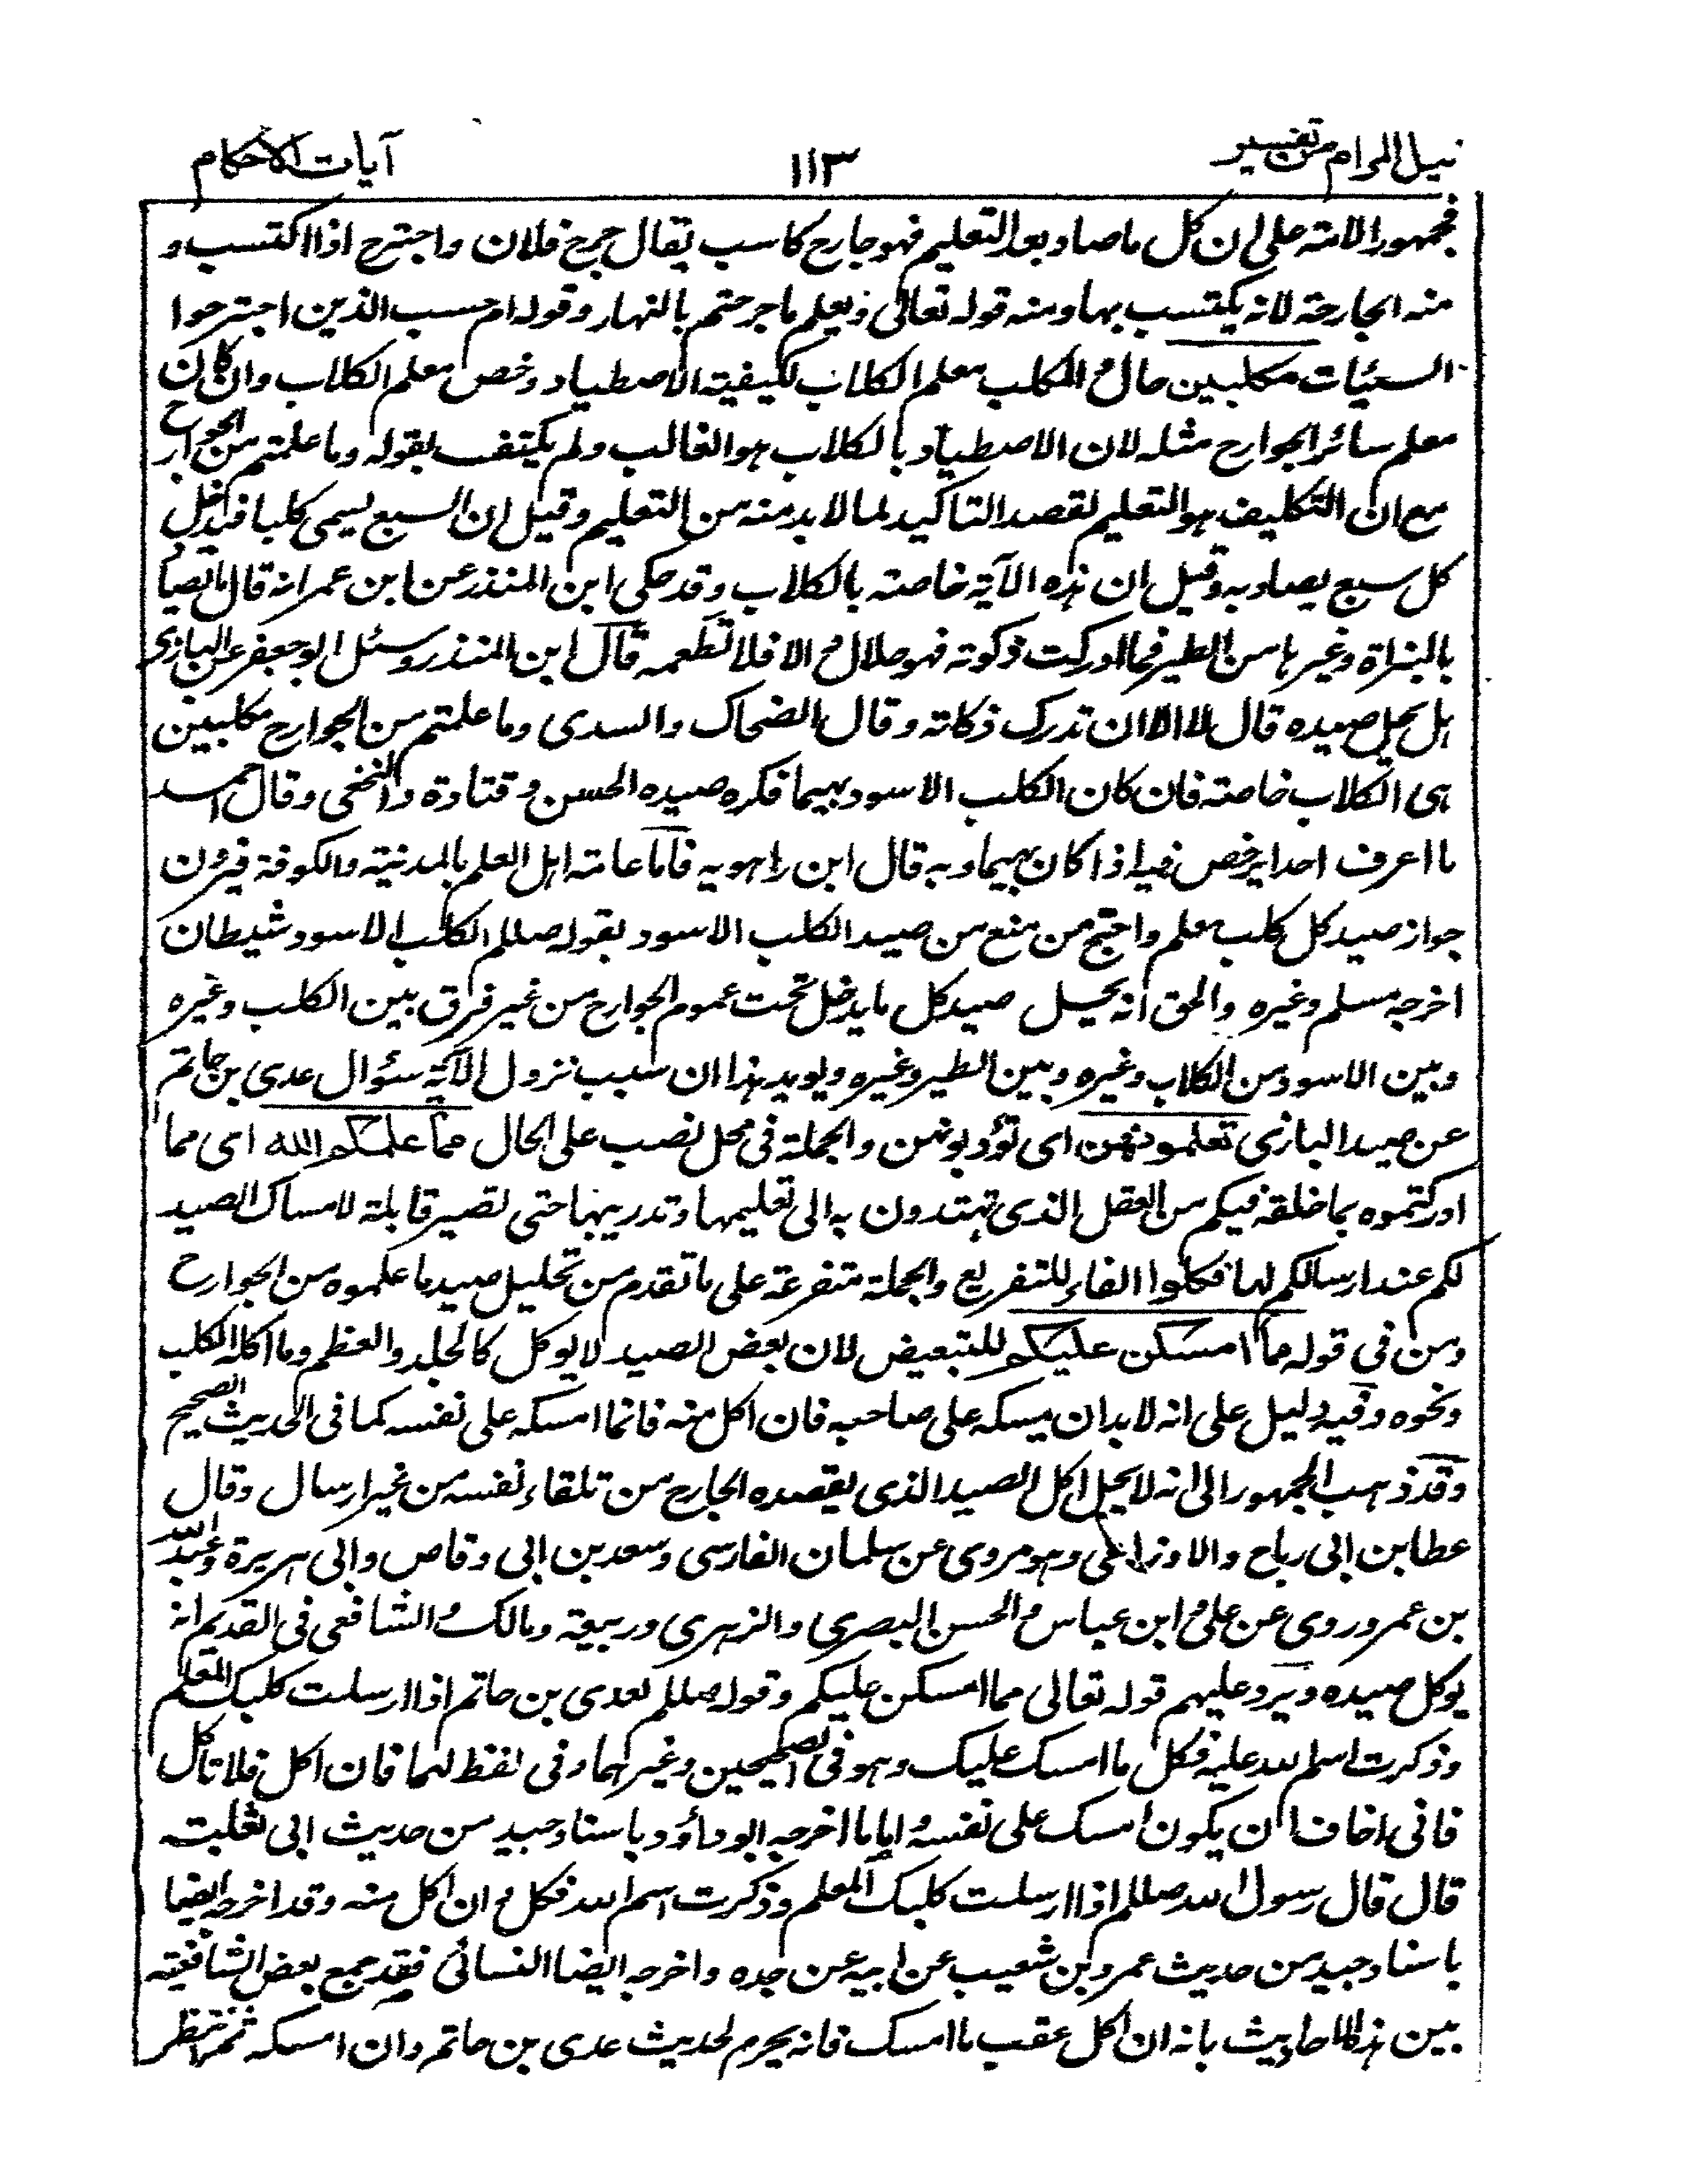 نيل المرام من تفسير ١١٣ آيات الاحكام
فجمهور الامة على ان كل ما صاد بعد التعليم فهو جارح كاسب يقال جرح فلان واجترح اذا اكتسب و
منه الجارحة لانه يكتسب بها ومنه قوله تعالى ويعلم ما جرحتم بالنهار وقوله ام حسب الذين اجترحوا
السيئات مكلبين حال والمكلب معلم الكلاب لكيفية الاصطياد وخص معلم الكلاب وان كان
معلم سائر الجوارح مثله لان الاصطياد بالكلاب هو الغالب ولم يكتف بقوله وما علمتم من الجوارح
مع ان التكليف هو التعليم لقصد التاكيد لما لا بد منه من التعليم وقيل ان السبع يسمى كلبا فيدخل
كل سبع يصاد به وقيل ان هذه الآية خاصة بالكلاب وقد حكى ابن المنذر عن ابن عمر انه قال ما يصاد
بالبزاة وغيرها من الطير فما ادركت ذكوته فهو حلال والا فلا تطعمه قال ابن المنذر وسئل ابو جعفر عن البازى
هل يحل صيده قال لا الا ان تدرك ذكاته وقال الضحاك والسدى وما علمتم من الجوارح مكلبين
هى الكلاب خاصة فان كان الكلب الاسود بهيما فكره صيده الحسن وقتادة والنخعى وقال احمد
ما اعرف احدا يرخص فيه اذا كان بهيما وبه قال ابن راهويه فاما عامة اهل العلم بالمدينة والكوفة فيرون
جواز صيد كل كلب معلم واحتج من منع من صيد الكلب الاسود بقوله صللم الكلب الاسود شيطان
اخرجه مسلم وغيره والحق انه يحل صيد كل ما يدخل تحت عموم الجوارح من غير فرق بين الكلب وغيره
وبين الاسود من الكلاب وغيره وبين الطير وغيره ويويد هذا ان سبب نزول الآية سئوال عدى بن حاتم
عن صيد البازى تعلمونهن اى تؤدبونهن والجملة فى محل نصب على الحال مما علمكم الله اى مما
ادركتموه بما خلقه فيكم من العقل الذى تهتدون به الى تعليمها وتدريبها حتى تصير قابلة لامساك الصيد
لكم عند ارسالكم لها فكلوا الفاء للتفريع والجملة متفرعة على ما تقدم من تحليل صيد ما علموه من الجوارح
ومن في قوله مما امسكن عليكم للتبعيض لان بعض الصيد لا يوكل كالجلد والعظم وما اكله الكلب
ونحوه وفيه دليل على انه لا بد ان يمسكه على صاحبه فان اكل منه فانما امسكه على نفسه كما فى الحديث الصحيح
وقد ذهب الجمهور الى انه لا يحل اكل الصيد الذى يقصده الجارح من تلقاء نفسه من غير ارسال وقال
عطا بن ابى رباح والاوزاعى وهو مروى عن سلمان الفارسى وسعد بن ابى وقاص وابى هريرة وعبد الله
بن عمر وروى عن على وابن عباس والحسن البصرى والزهرى وربيعة ومالك والشافعى فى القديم انه
يوكل صيده ويرد عليهم قوله تعالى مما امسكن عليكم وقوله صللم لعدى بن حاتم اذا ارسلت كلبك المعلم
وذكرت اسم الله عليه فكل ما امسك عليك وهو فى الصحيحين وغيرهما وفى لفظ لهما فان اكل فلا تاكل
فانى اخاف ان يكون امسك على نفسه واما ما اخرجه ابو داؤد باسناد جيد من حديث ابى ثعلبة
قال قال رسول الله صللم اذا ارسلت كلبك المعلم وذكرت اسم الله فكل وان اكل منه وقد اخرجه ايضا
باسناد جيد من حديث عمرو بن شعيب عن ابيه عن جده واخرجه ايضا النسائى فقد جمع بعض الشافعية
بين هذه الاحاديث بانه ان اكل عقب ما امسك فانه يحرم لحديث عدى بن حاتم وان امسكه ثم انتظر